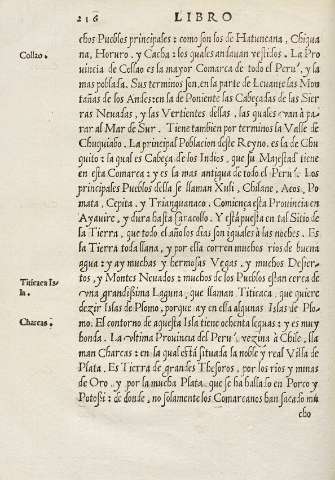 216 LIBRO
chos Pueblos principales: como son los de Hatuncana, Chiqua
na, Horuro, y Cacha: los quales andauan vestidos. La Pro
Collao. uincia de Collao es la mayor Comarca de todo el Peru', y la
mas poblada. Sus terminos son, en la parte de Leuante las Mon
tañas de los Andes: en la de Poniente las Cabeçadas de las Sier
ras Neuadas, y las Vertientes dellas, las quales van à pa-
rar al Mar de Sur. Tiene tambien por terminos la Valle de
Chuquiabo. La principal Poblacion deste Reyno. es la de Chu
quito: la qual es Cabeça de los Indios, que su Majestad tiene
en esta Comarca: y es la mas antigua de todo el Peru'. Los
principales Pueblos della se llaman Xuli, Chilane, Acos, Po
mata, Cepita, y Trianguanaco. Comiença esta Prouincia en
Ayauire, y dura hasta Caracollo. Y està puesta en tal Sitio de
la Tierra, que todo el año los dias son iguales à las noches. Es
la Tierra toda llana, y por ella corren muchos rios de buena
agua: y ay muchas y hermosas Vegas, y muchos Desier-
Titicaca Is- tos, y Montes Neuados: muchos de los Pueblos estan cerca de
la. vna grandißima Laguna, que llaman Titicaca, que quiere
dezir Islas de Plomo, porque ay en ella algunas Islas de Plo-
Charcas. mo. El contorno de aquesta Isla tiene ochenta leguas: y es muy
honda. La vltima Prouincia del Peru' vezina à Chile, lla
man Charcas: en la qual està situada la noble y real Villa de
Plata. Es Tierra de grandes Thesoros, por los rios y minas
de Oro, y por la mucha Plata, que se ha hallado en Porco y
Potoßi: de donde, no solamente los Comarcanes han sacado mu
cho